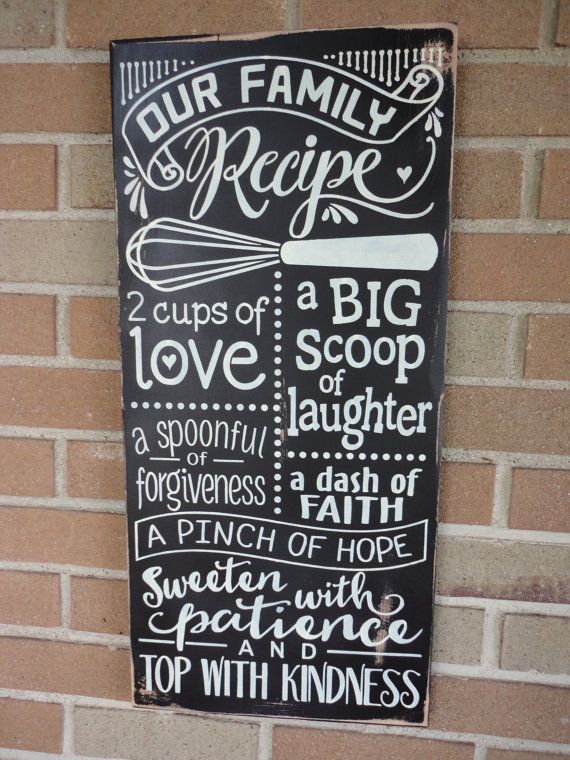 OUR FAMILY
Recipe
2 cups of
love
a BIG
Scoop
of
laughter
a spoonful
OF
forgiveness
a dash of
FAITH
A PINCH OF HOPE
Sweeten with
patience
AND
TOP WITH KINDNESS